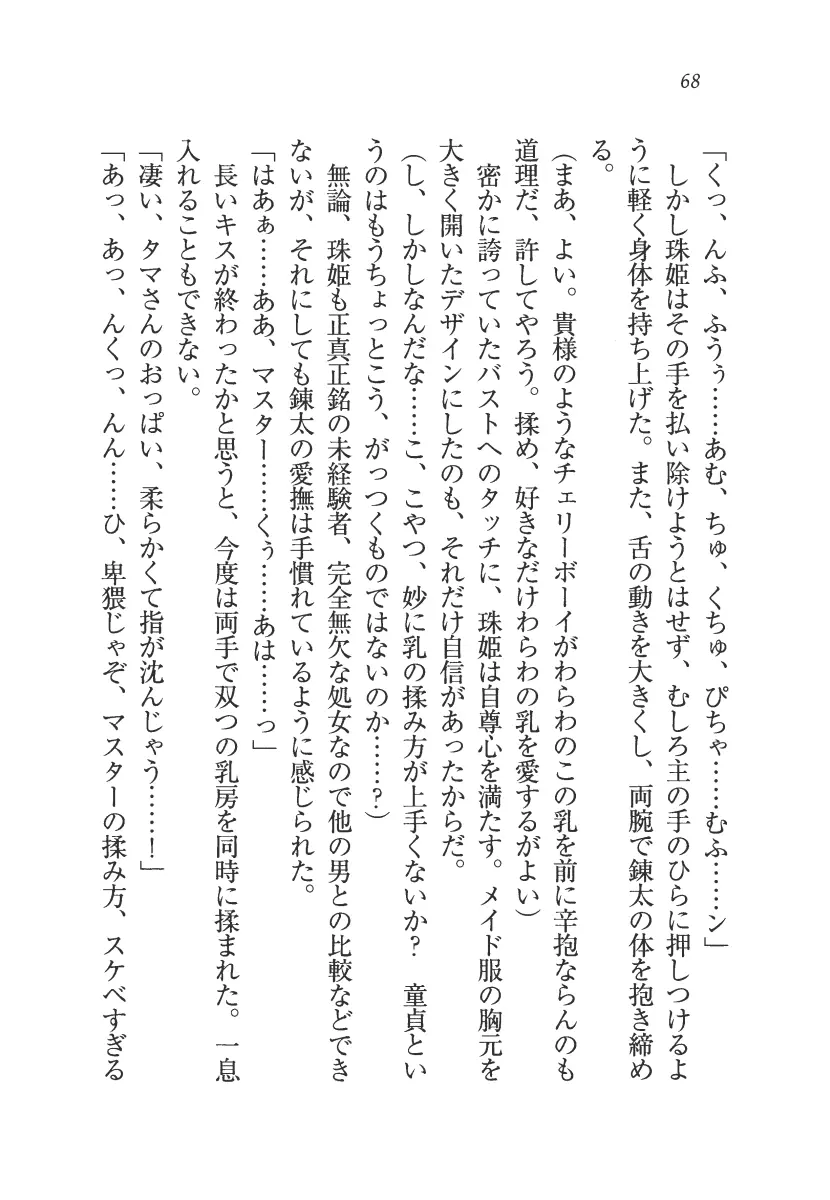 68
「くっ、んふ、ふうぅ……あむ、ちゅ、くちゅ、ぴちゃ……むふ……ン」
　しかし珠姫はその手を払い除けようとはせず、むしろ主の手のひらに押しつけるよ
うに軽く身体を持ち上げた。また、舌の動きを大きくし、両腕で錬太の体を抱き締め
る。
（まあ、よい。貴様のようなチェリーボーイがわらわのこの乳を前に辛抱ならんのも
道理だ、許してやろう。揉め、好きなだけわらわの乳を愛するがよい）
　密かに誇っていたバストへのタッチに、珠姫は自尊心を満たす。メイド服の胸元を
大きく開いたデザインにしたのも、それだけ自信があったからだ。
（し、しかしなんだな……こ、こやつ、妙に乳の揉み方が上手くないか？　童貞とい
うのはもうちょっとこう、がっつくものではないのか……？）
　無論、珠姫も正真正銘の未経験者、完全無欠な処女なので他の男との比較などでき
ないが、それにしても錬太の愛撫は手慣れているように感じられた。
「はあぁ……ああ、マスター……くぅ……あは……っ」
　長いキスが終わったかと思うと、今度は両手で双つの乳房を同時に揉まれた。一息
入れることもできない。
「凄い、タマさんのおっぱい、柔らかくて指が沈んじゃう……！」
「あっ、あっ、んくっ、んん……ひ、卑猥じゃぞ、マスターの揉み方、スケベすぎる